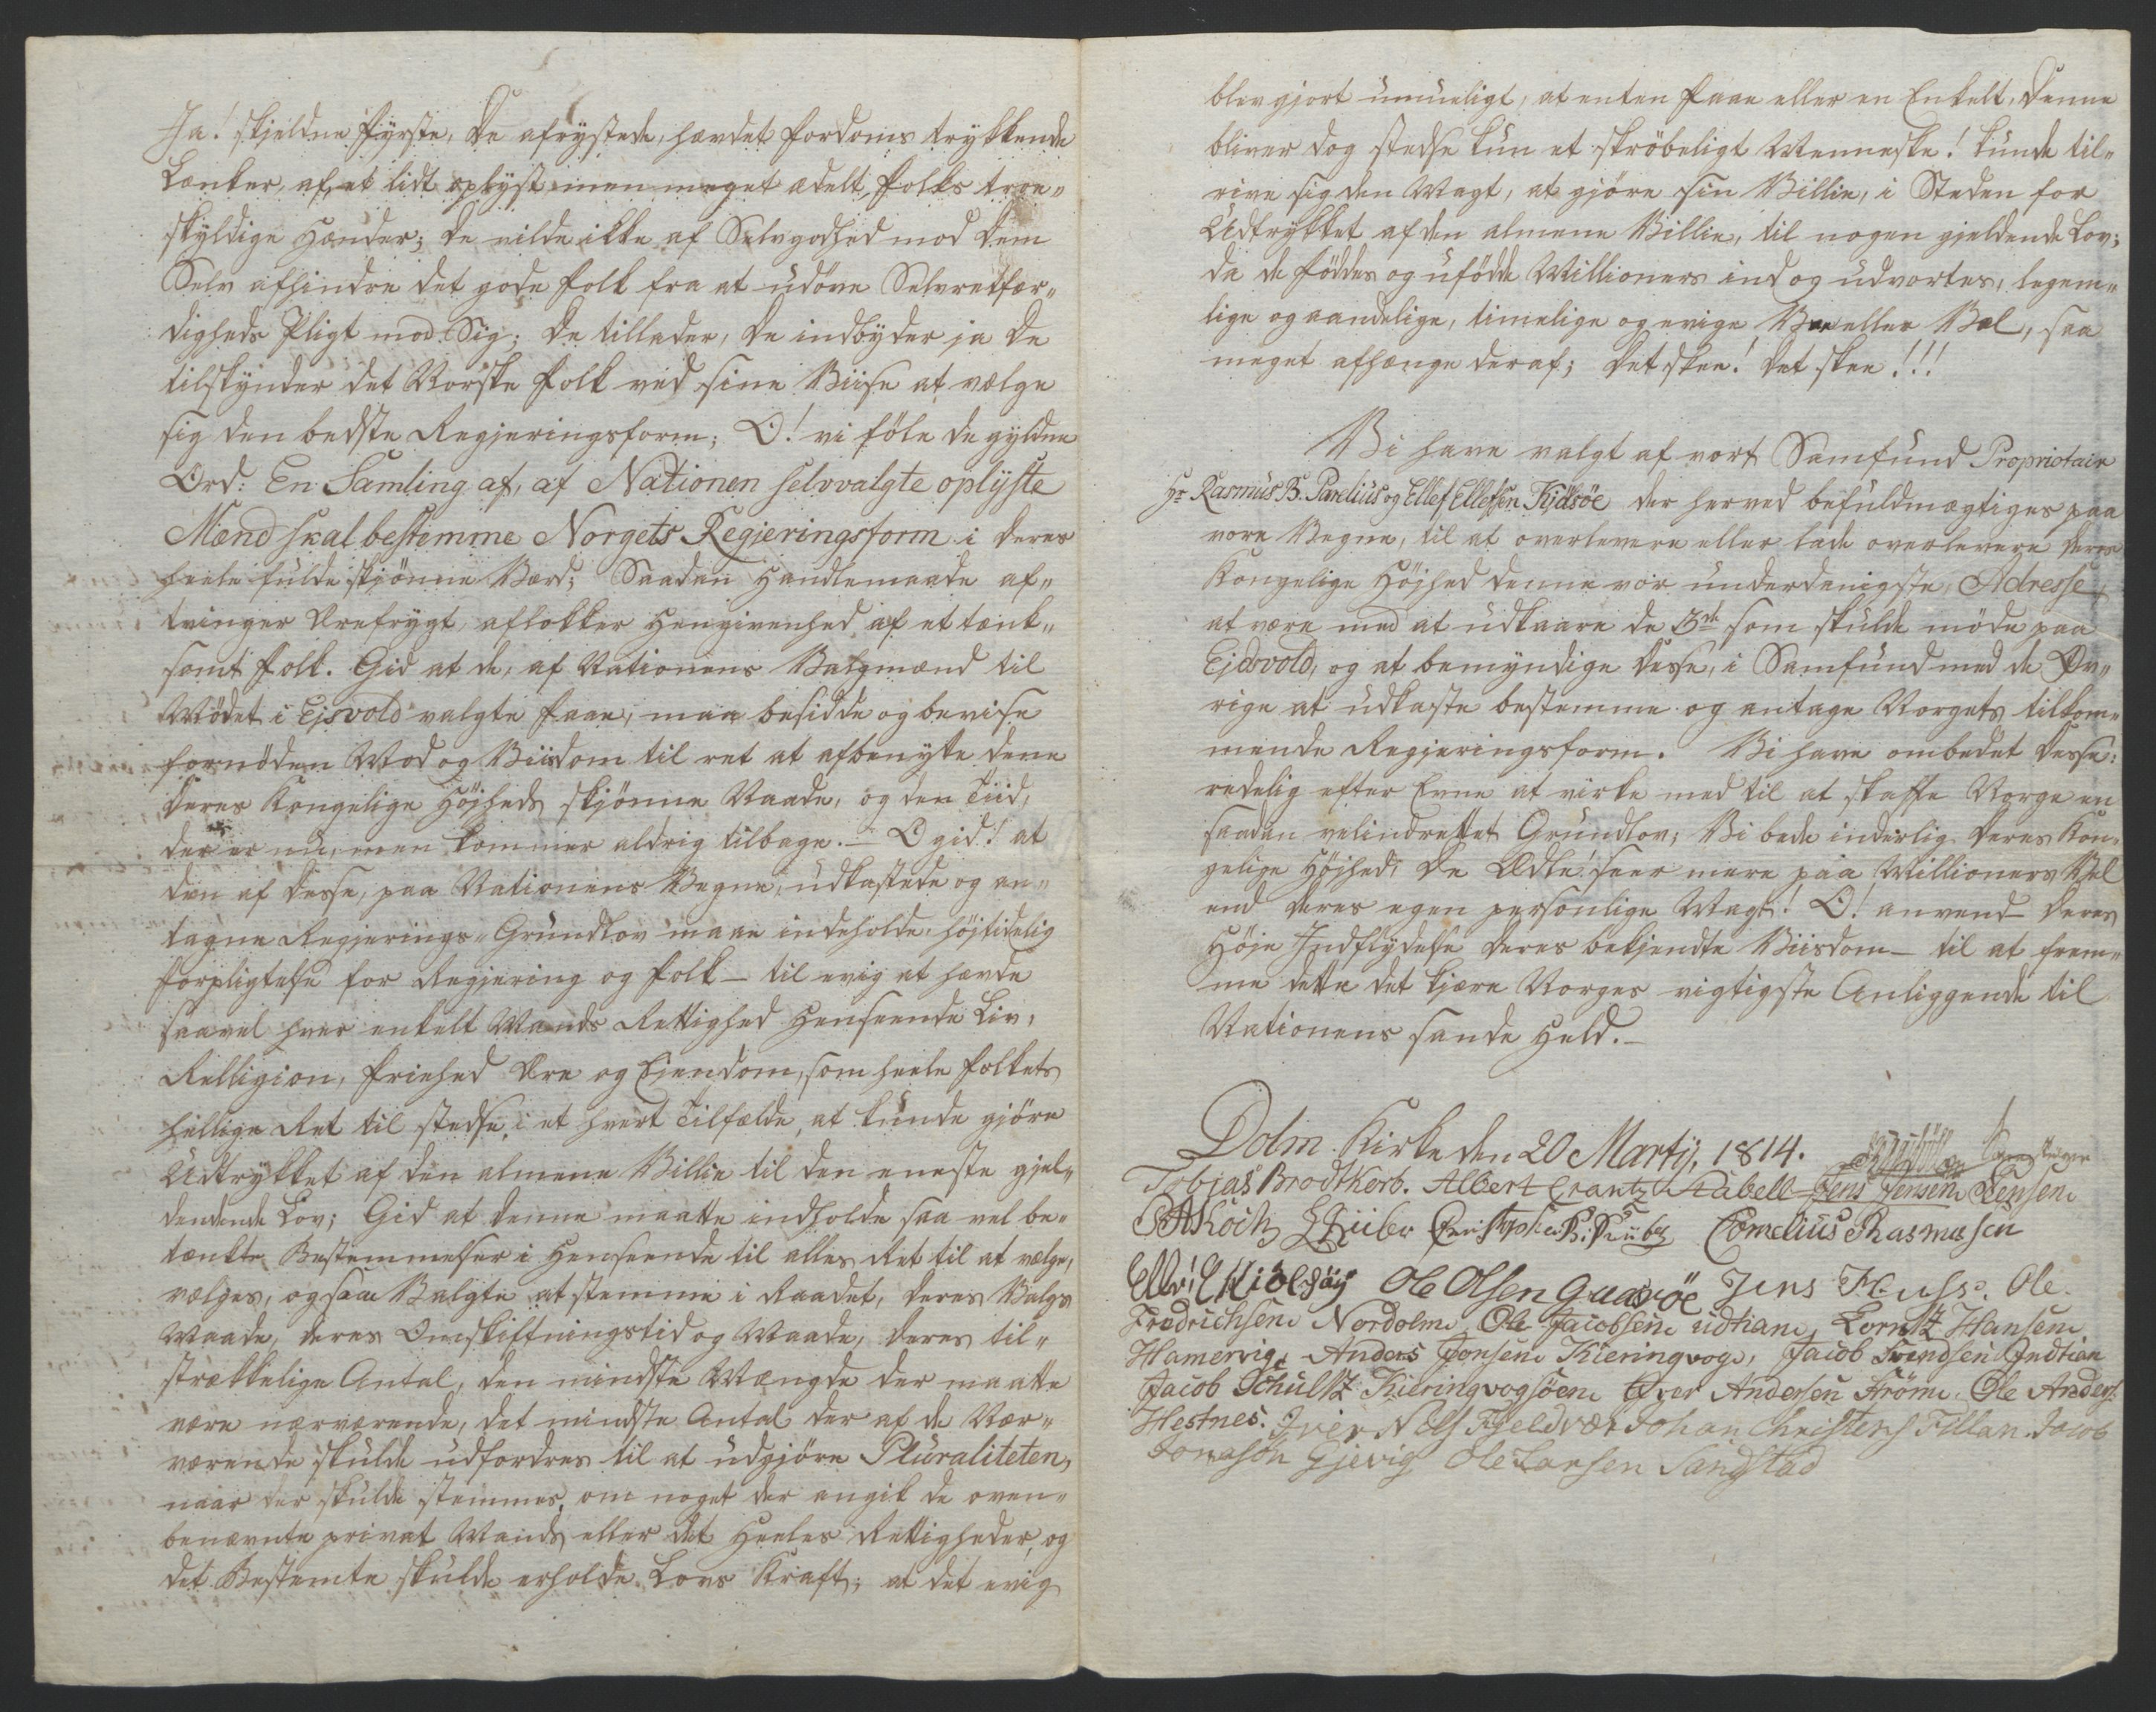 Ja! skjeldne Fyrste, De afrystede, hævdet fordoms trykkende
Lænker, af, et lidt oplyst men meget ædelt, Folks troe-
skyldige Hænder; De vilde ikke af Selvgodhed mod Dem
Selv afhindre det gode Folk fra at udöve Selvretfær-
digheds Pligt mod Sig; De tillader, De indbyder ja De
tilskynder det Norske Folk ved sine Viise at vælge
sig den bedste Regjeringsform; O! vi föle de gyldne
Ord: En Samling af, af Nationen selvvalgte oplyste
Mænd skal bestemme Norgets Regjeringsform i deres
heele fulde skjönne Værd; Saadan Handlemaade af-
tvinger Ærefrygt, aflokker Hengivenhed af et tænk-
somt Folk. Gid at de, af Nationens Valgmænd til
Mödet i Ejsvold valgte Faae, maa besidde og bevise
fornöden Mod og Viisdom til ret at afbenytte denne
Deres Kongelige Höjheds skjönne Naade, og den Tiid,
der er nu, men kommer aldrig tilbage. — O gid! at
den af Desse, paa Nationens Vegne, udkastede og an-
tagne Regjerings-Grundlov maae indeholde, höjtidelig
forpligtelse for Regjering og Folk — til evig at hævde
saavel hver enkelt Mands Rettighed Henseende Liv,
Relligion, Friehed Ære og Ejendom, som heele Folkets
hellige Ret til stedse, i et hvert Tilfælde, at kunde gjöre
Udtrykket af den almene Villie til den eneste gjel-
dendende Lov; Gid at denne maatte indholde saa vel be-
tænkte Bestemmelser i Henseende til alles Ret til at vælge,
vælges, og som Valgte at stemme i Raadet, deres Valgs
Maade, deres Omskiftningstid og Maade, deres til-
strækkelige Antal, den mindste Mængde der maatte
være nærværende, det mindste Antal der af de Nær-
værende skulde udfordres til at udgjöre Pluraliteten,
naar der skulde stemmes, om noget der angik de oven-
benævnte privat Mands eller det Heeles Rettigheder, og
det Bestemte skulde erholde Lovs Kraft; at det evig
blev gjort umueligt, at enten Faae eller en Enkelt, Denne
bliver dog stedse kun et skröbeligt Menneske! kunde til-
rive sig den Magt, at gjöre sin Villie, i Steden for
Udtrykket af den almene Villie, til nogen gjeldende Lov;
da de föddes og ufödde Millioners ind og udvortes, legem-
lige og aandelige, timelige og evige Vee eller Vel, saa
meget afhænge deraf; Det skee! Det skee!!!
Vi have valgt af vort Samfund Proprietair
Hr Rasmus B. Parelius og Ellef Ellefsen Kjdsöe der herved befuldmægtiges paa
vore Vegne, til at overlevere eller lade overlevere Deres
Kongelige Höjhed denne vor underdanigste Adresse,
at være med at udkaare de 3de som skulde möde paa
Ejdsvold, og at bemyndige Desse, i Samfund med de Öv-
rige at udkaste bestemme og antage Norgets tilkom-
mende Regjeringsform. Vi have ombedet Desse:
redelig efter Evne at virke med til at skaffe Norge en
saadan velindrettet Grundlov; Vi bede inderlig Deres Kon-
gelige Höjhed, De Ædle! seer mere paa Millioners Vel
end Deres egen personlige Magt! O! anvend Deres
Höje Indflydelse Deres bekjendte Viisdom — til at frem-
me dette det kjære Norges vigtigste Anliggende til
Nationens sande Held. —
Dolm Kirke den 20 Martij, 1814.
Tobias Brodtkorb. Albert Crantz Kabell Jens Jensen Jensen
Koch Christopher Cornelius Rasmusen
Ole Olsen Jens Ole
Fredrichsen Nordolm Ole Jacobsen udtian, Lorntz Hansen
Hamervig, Anders Jonsen Kieringvog, Jacob Svendsen Indtian
Jacob Schultz Kieringvogsöen Iver Andersen Ström Ole Anders:
Hestnes. Iver Niels Fjeldvær Johan Christens Fillan Jacob
Jonason Gjevig Ole Larsen Sandstad